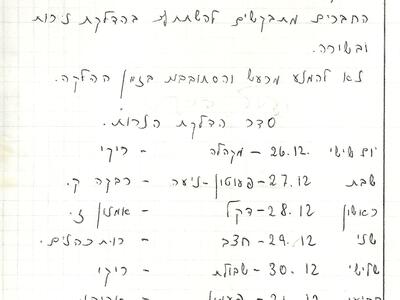 החברים מתבקשים להשתתף בהדלקת נירות
ובשירה.
לא להמנע מרעש והסתובבות בזמן ההלקה.
סדר הדלקת הנרות.
יום שישי 26.12 – מקהלה - ריקי
שבת 27.12 – פעוטון - רבקה ק.
ראשון 28.12 – דקל - אמנון ז.
שני 29.12 – חצב - רות
שלישי 30.12 – שבולת - ריקי